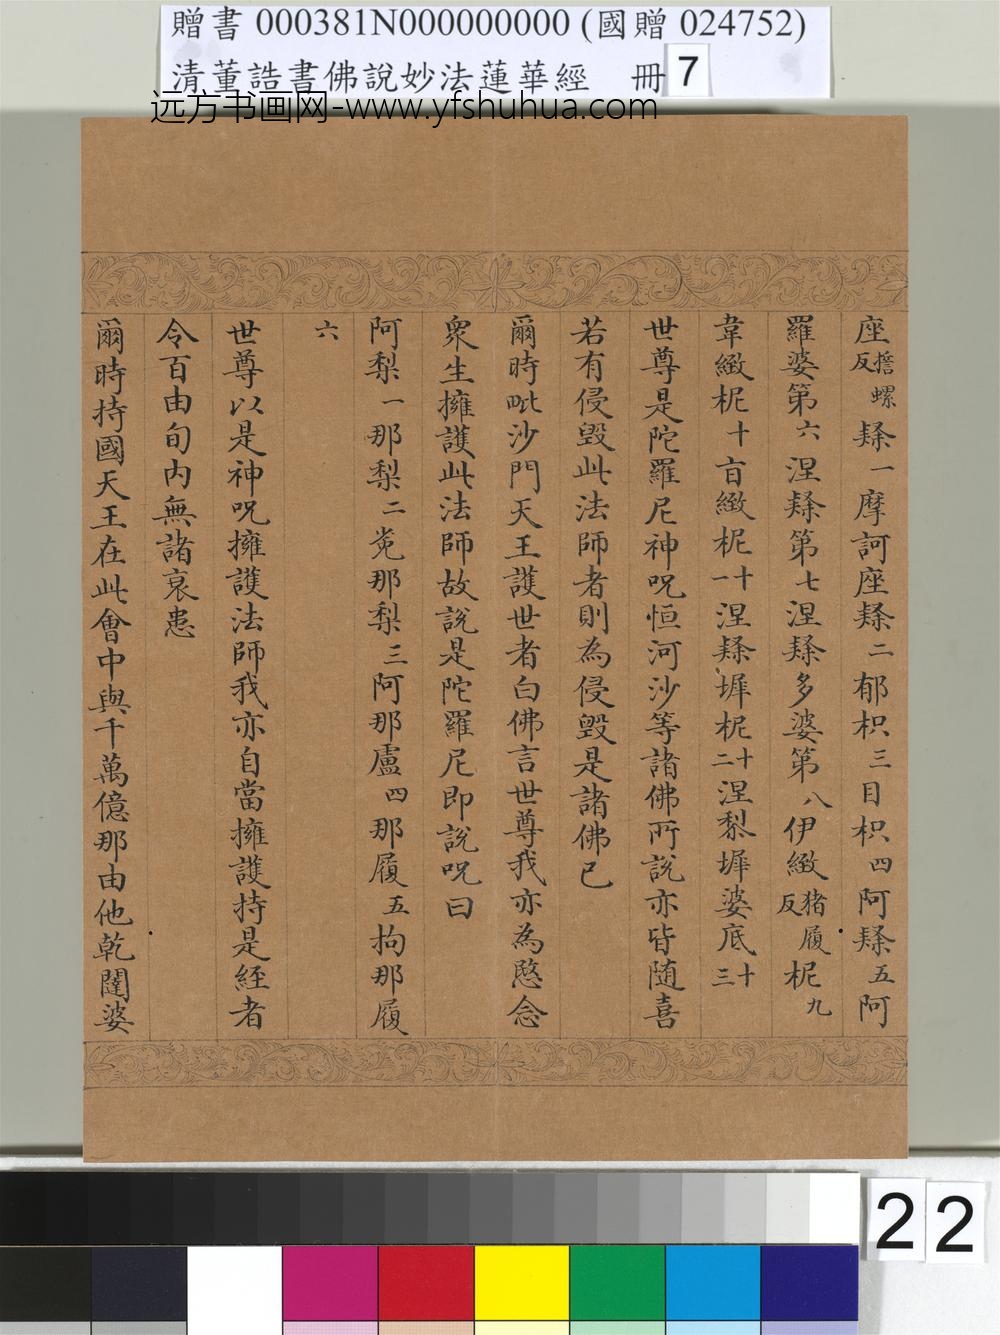 贈書 000381N000000000 (國贈 024752)
清董誥書佛說妙法蓮華經 冊 7
远方书画网-www.yfshuhua.com
座誓螺反隸一摩訶座隸二郁枳三目枳四阿隸五阿
羅婆第六涅隸第七涅隸多婆第八伊緻猪履反柅九
韋緻柅十旨緻柅十一涅隸墀柅十二涅梨墀婆底十三
世尊是陀羅尼神呪恒河沙等諸佛所說亦皆随喜
若有侵毀此法師者則為侵毀是諸佛已
爾時毗沙門天王護世者白佛言世尊我亦為愍念
衆生擁護此法師故說是陀羅尼即說呪曰
阿梨一那梨二㝹那梨三阿那盧四那履五拘那履
六
世尊以是神呪擁護法師我亦自當擁護持是經者
令百由旬內無諸衰患
爾時持國天王在此會中與千萬億那由他乾闥婆
22